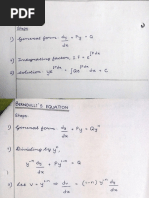 Steps
1) General form dy/dx + Py = Q
2) Integrating factor I.F = e^∫Pdx
3) Solution ye^∫Pdx = ∫Qe^∫Pdx dx + C
BERNOULLI'S EQUATION
Steps:
1) General form dy/dx + Py = Qyⁿ
2) Dividing by yⁿ
y⁻ⁿ dy/dx + Py¹⁻ⁿ = Q
3) Let v = y¹⁻ⁿ ⇒ dv/dx = (1-n) y⁻ⁿ dy/dx